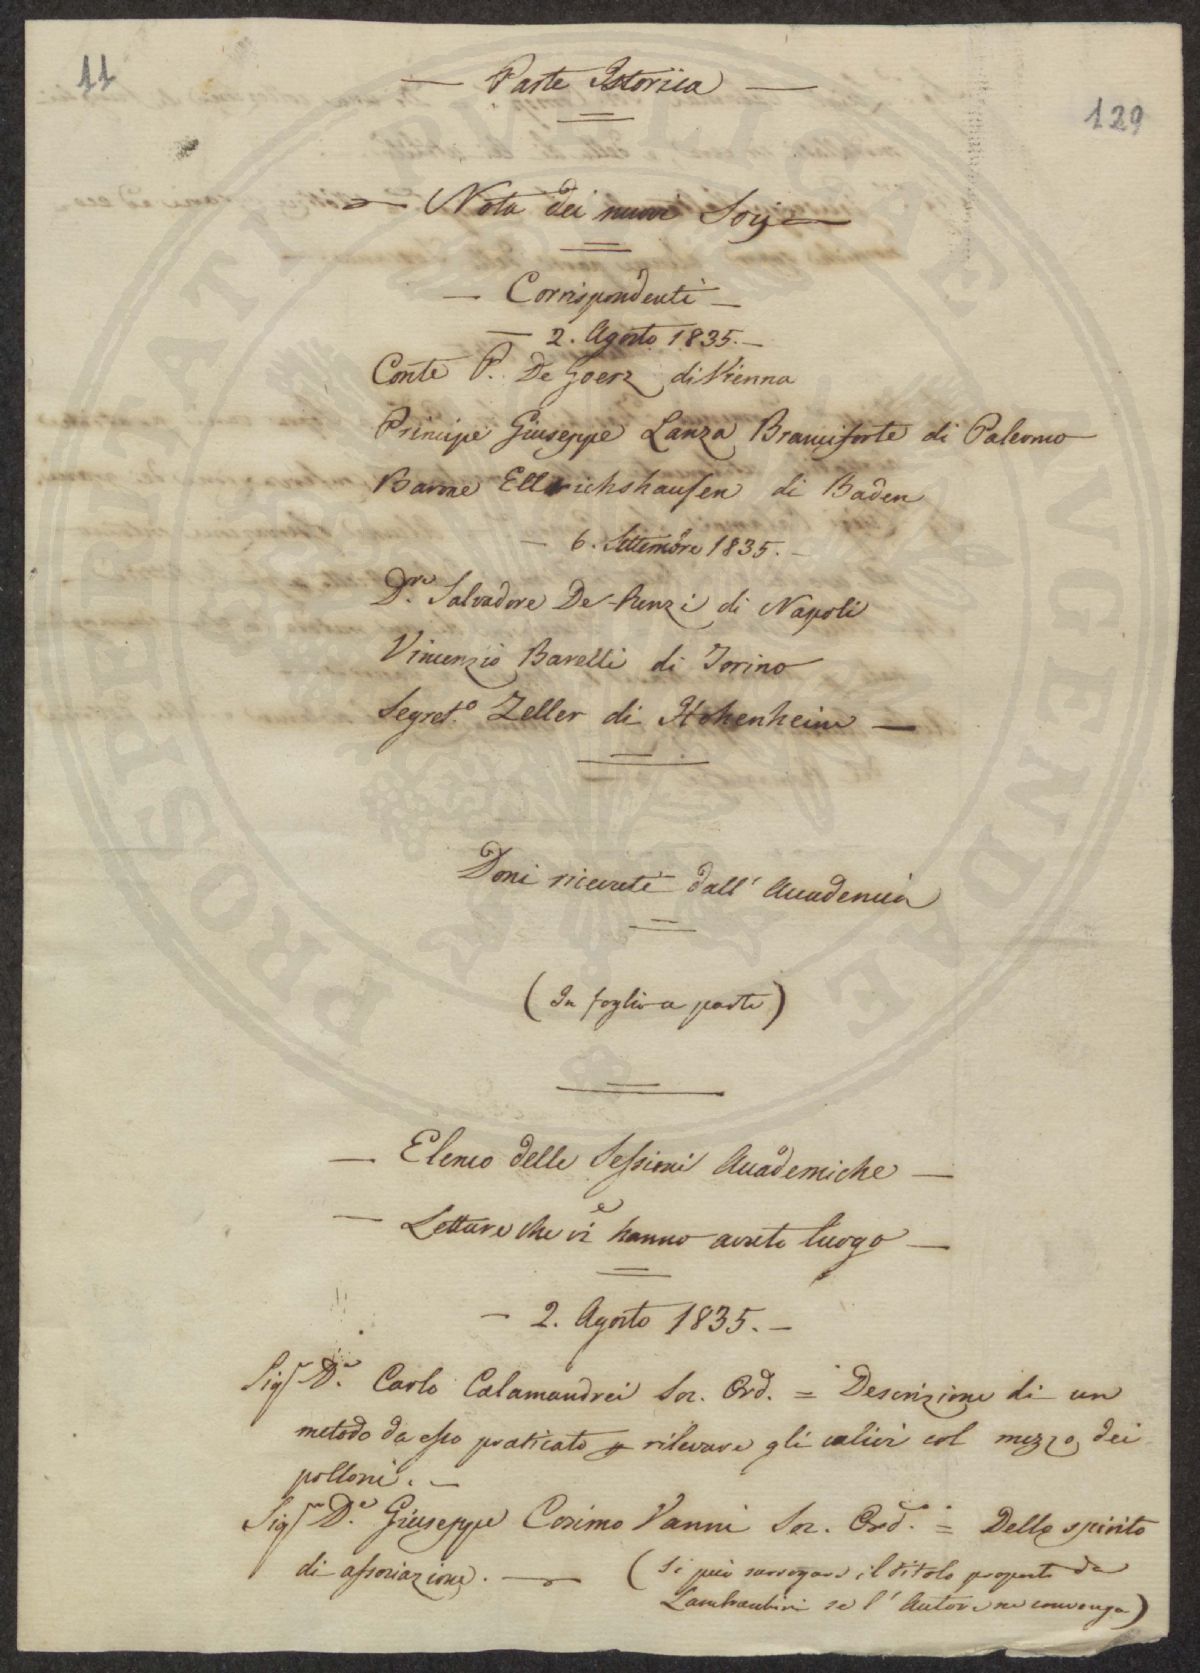 11
129
— Parte Istorica —
— Nota dei nuovi Socj —
— Corrispondenti —
— 2. Agosto 1835. —
Conte P. De Goerz di Vienna
Principe Giuseppe Lanza Branciforte di Palermo
Barone Ellrichshausen di Baden
— 6. Settembre 1835. —
D.re Salvadore De-Renzi di Napoli
Vincenzio Barelli di Torino
Segret.o Zeller di Hohenheim —
Doni ricevuti dall' Accademia
(In foglio a parte)
— Elenco delle Sessioni Accademiche —
— Letture che vi hanno avuto luogo —
— 2. Agosto 1835. —
Sigr D.e Carlo Calamandrei Soc. Ord. = Descrizione di un
metodo da esso praticato p rilevare gli ulivi col mezzo dei
polloni. —
Sigr D.e Giuseppe Cosimo Vanni Soc. Ord. = Dello spirito
di associazione. — (Si può surrogare il titolo proposto da
Lambruschini se l' Autore ne convenga)
PROSPERITATI PUBLICAE AUGENDAE